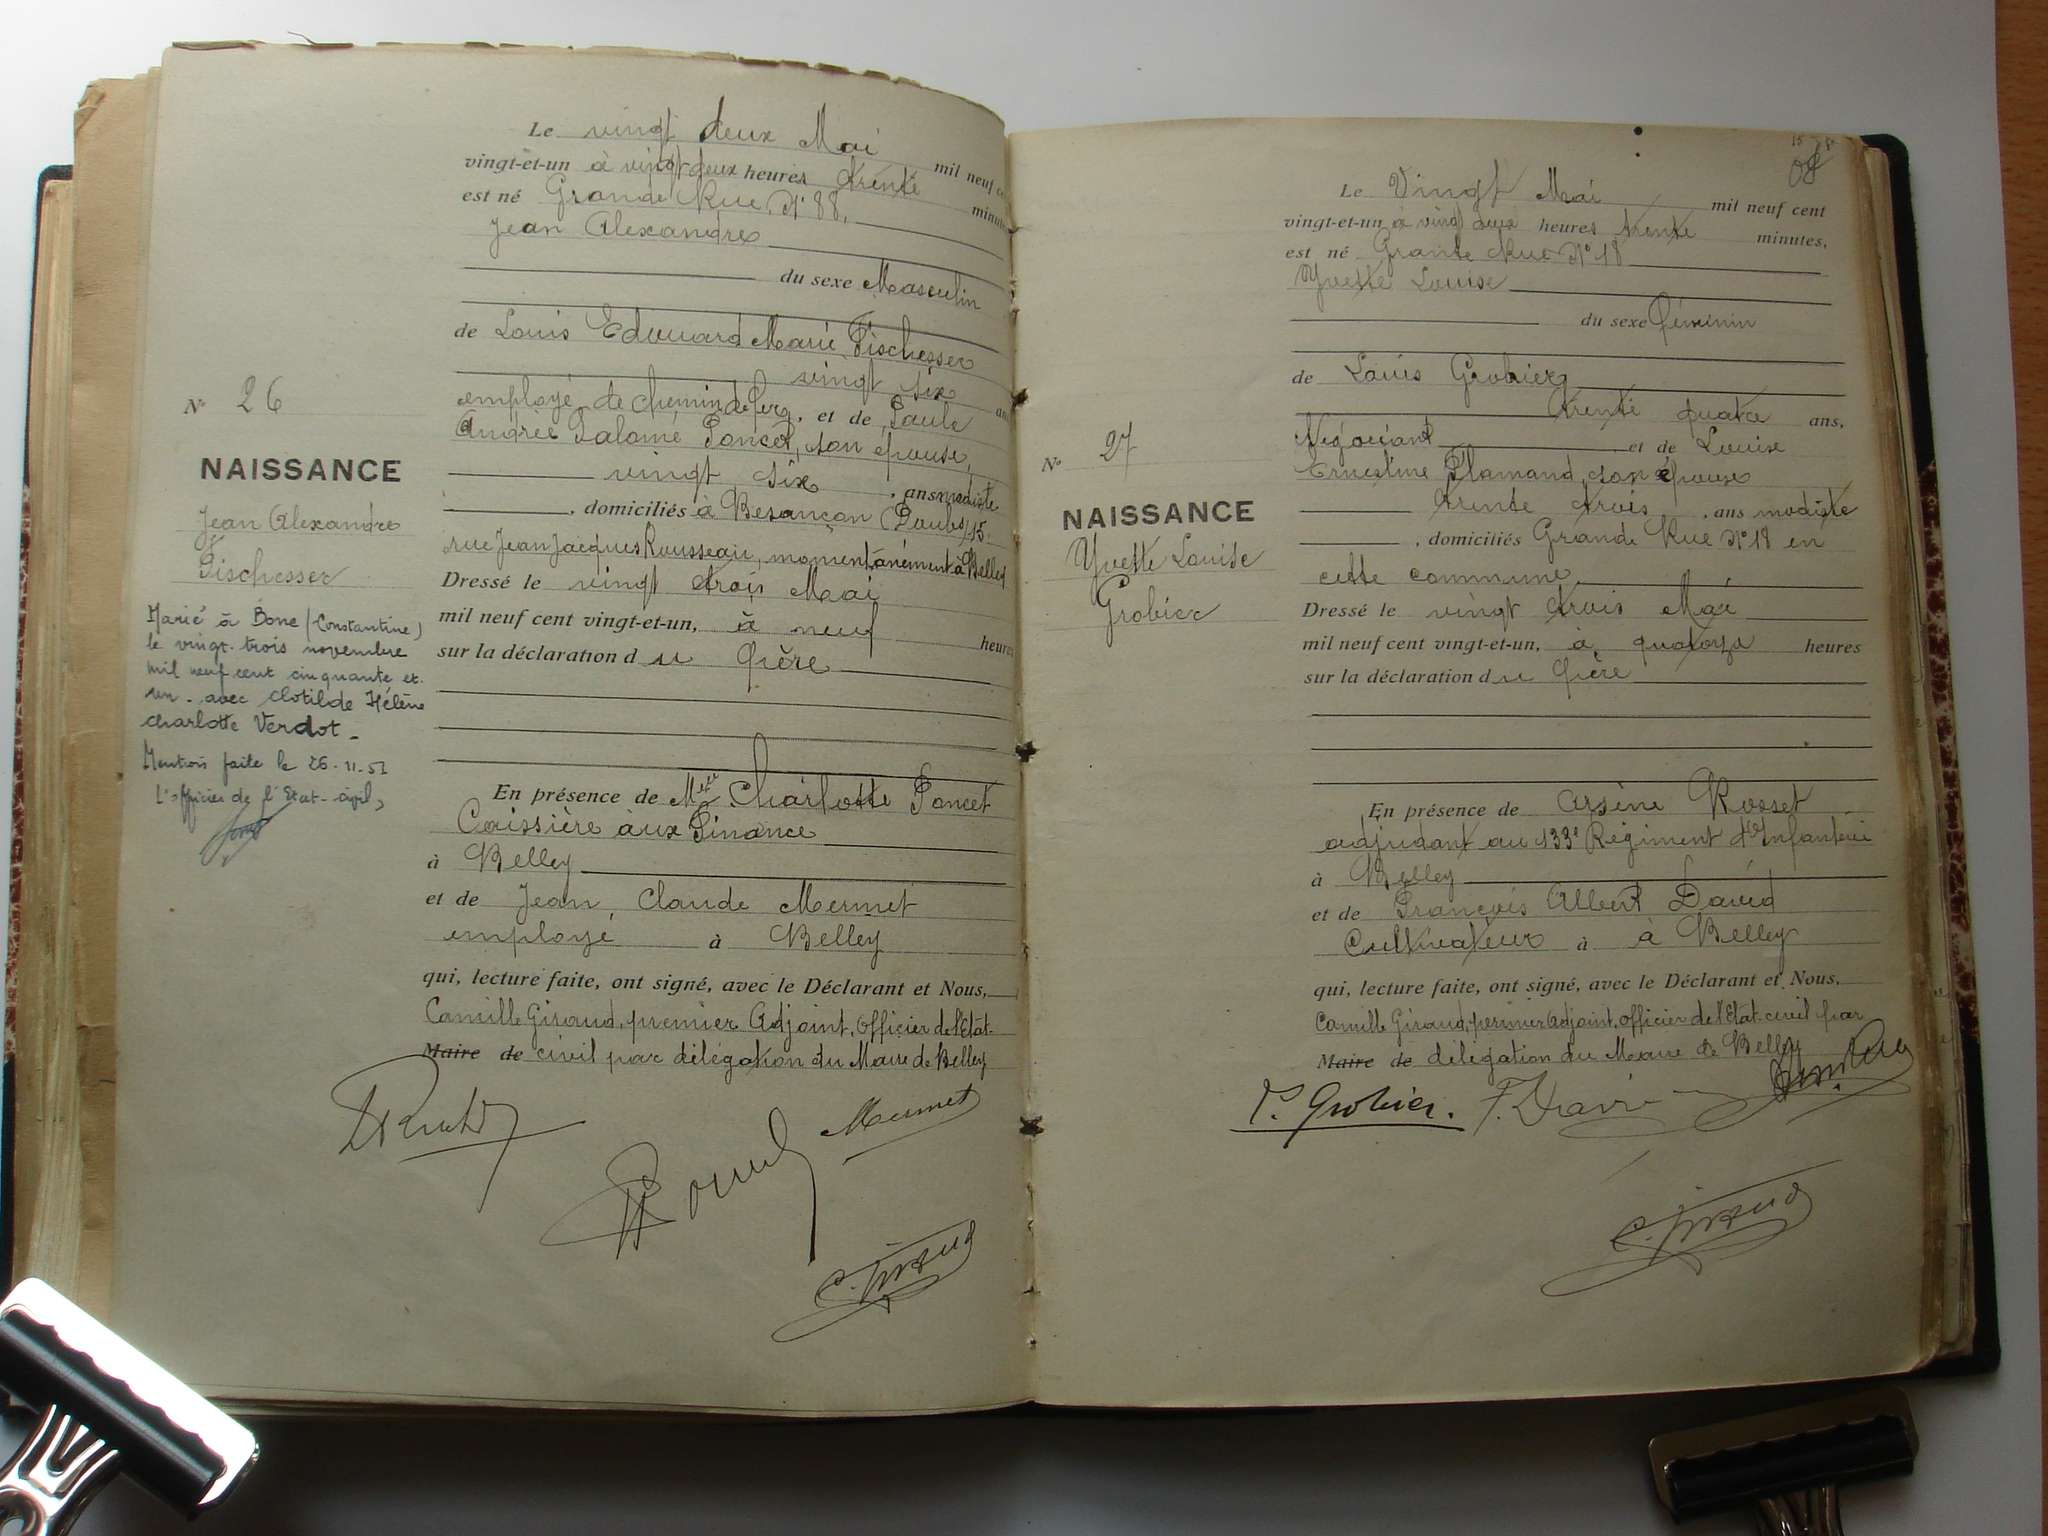 Le vingt deux Mai mil neuf ce
vingt-et-un à vingt deux heures trente minutes
est né Grande Rue, N° 88,
Jean Alexandre
du sexe Masculin
de Louis Edouard Marie Fischesser
vingt six an
employé de chemin de fer, et de Paule
Andrée Salomé Poncet, son épouse,
vingt six, ans modiste
, domiciliés à Besançon (Doubs) 15.
rue Jean Jacques Rousseau, momentanément à Belley
Dressé le vingt trois Mai
mil neuf cent vingt-et-un, à neuf heures
sur la déclaration du Père
N° 26
NAISSANCE
Jean Alexandre
Fischesser
Marié à Bone (Constantine)
le vingt-trois novembre
mil neuf cent cinquante et
un - avec Clotilde Hélène
Charlotte Verdot -
Mention faite le 26-11-51
L'officier de l'Etat-civil,
En présence de Melle Charlotte Poncet
Caissière aux Finance
à Belley
et de Jean, Claude Mermet
employé à Belley
qui, lecture faite, ont signé, avec le Déclarant et Nous,
Camille Giraud, premier Adjoint, Officier de l'Etat-
Maire de civil par délégation du Maire de Belley
Mermet
C. Giraud
Le Vingt Mai mil neuf cent
vingt-et-un à vingt deux heures trente minutes,
est né Grande Rue N° 18
Yvette Louise
du sexe Féminin
de Louis Grobier
trente quatre ans,
Négociant et de Louise
Ernestine Flamand, son épouse
trente trois, ans modiste
, domiciliés Grande Rue N° 18 en
cette commune
Dressé le vingt trois Mai
mil neuf cent vingt-et-un, à quatorze heures
sur la déclaration du Père
N° 27
NAISSANCE
Yvette Louise
Grobier
En présence de Arsène Rosset
adjudant au 133e Régiment d'Infanterie
à Belley
et de François Albert David
Cultivateur à à Belley
qui, lecture faite, ont signé, avec le Déclarant et Nous,
Camille Giraud, permier Adjoint, Officier de l'Etat-civil par
Maire de délégation du Maire de Belley
L. Grobier. F. David
C. Giraud